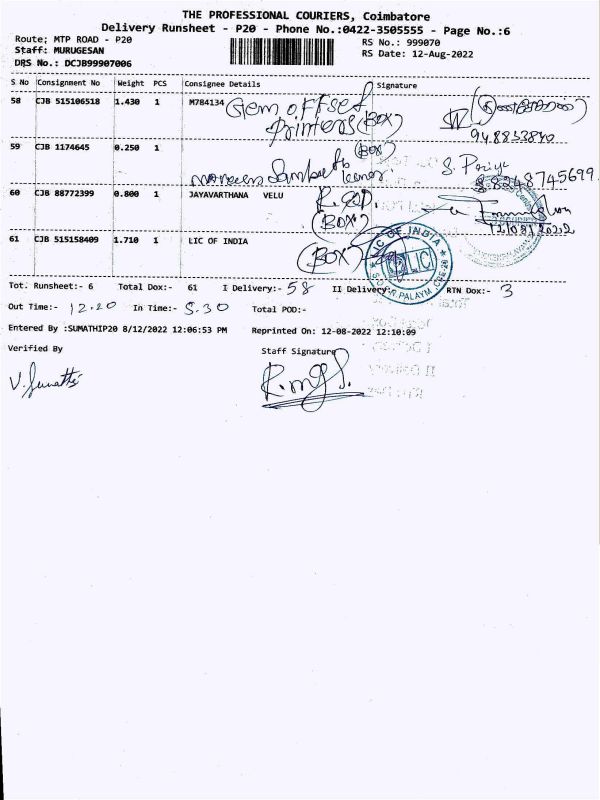 THE PROFESSIONAL COURIERS, Coimbatore
Delivery Runsheet - P20 - Phone No.:0422-3505555 - Page No.:6
Route: MTP ROAD - P20
RS No.: 999070
Staff: MURUGESAN
RS Date: 12-Aug-2022
DRS No.: DCJB99907006
S No Consignment No Weight PCS Consignee Details Signature
58 CJB 515106518 1.430 1 M784134 Gem offset
Printers (BOX)
59 CJB 1174645 0.250 1 (BOX)
S. Priya
60 CJB 88772399 0.800 1 JAYAVARTHANA VELU
(BOX)
12/08/2022
61 CJB 515158409 1.710 1 LIC OF INDIA
(BOX)
LIC OF INDIA
LIC
Tot. Runsheet:- 6 Total Dox:- 61 I Delivery:- 58 II Delivery:- RTN Dox:- 3
Out Time:- 12.20 In Time:- 5.30 Total POD:-
Entered By :SUMATHIP20 8/12/2022 12:06:53 PM Reprinted On: 12-08-2022 12:10:09
Verified By Staff Signature